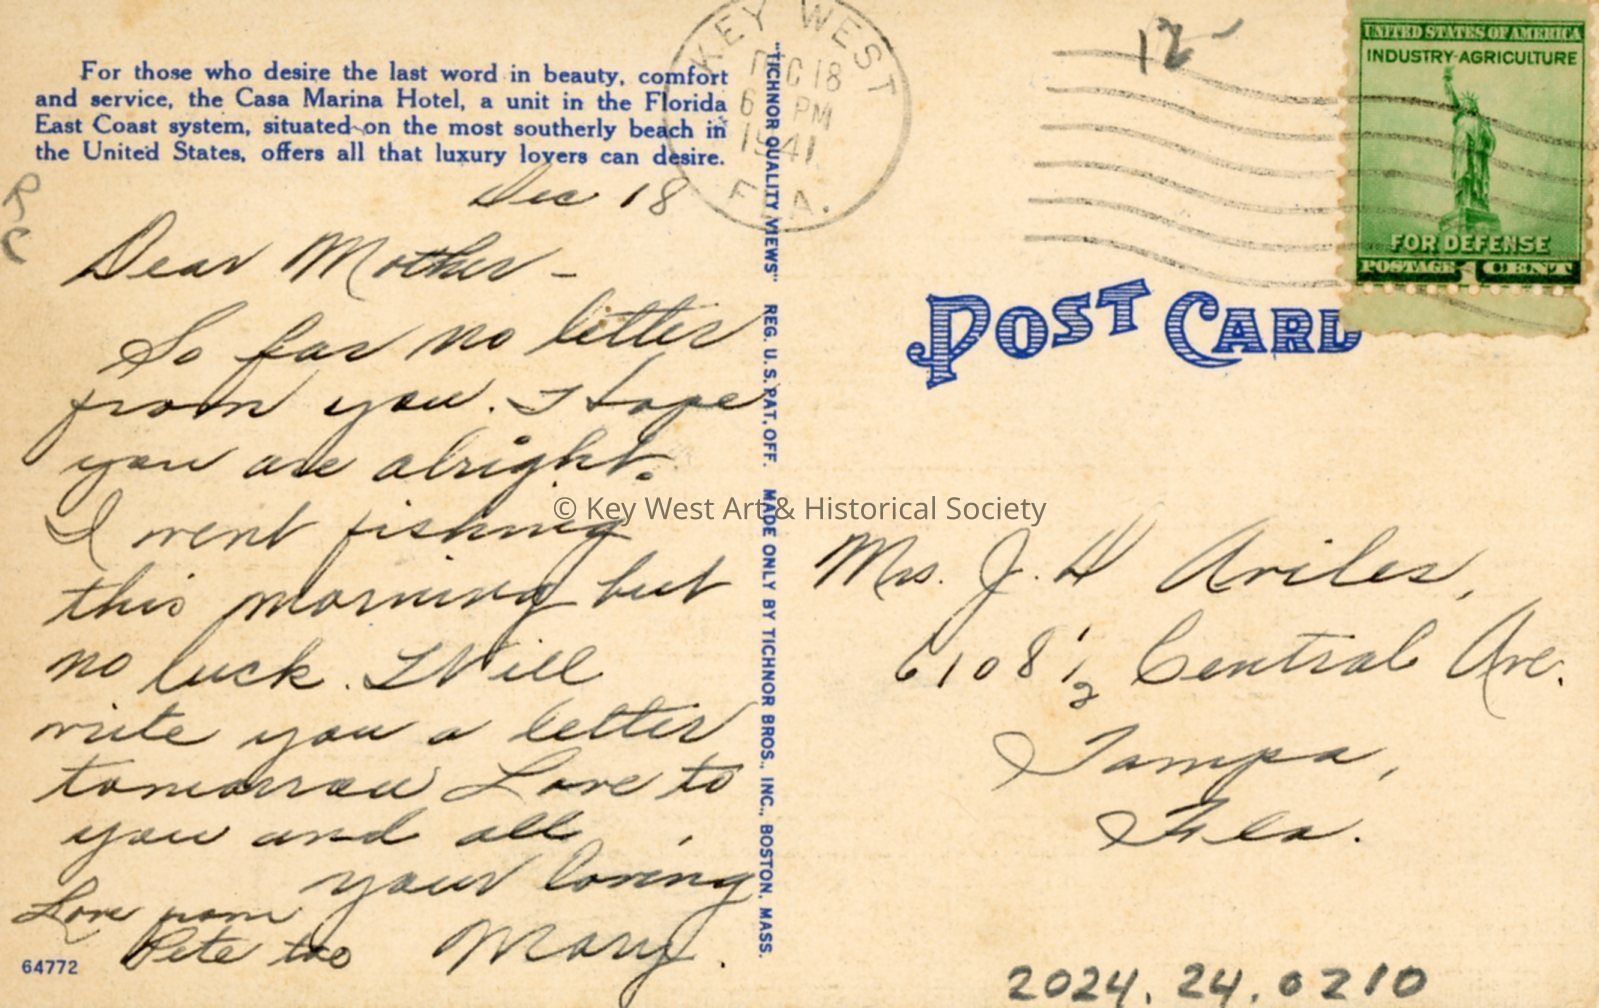 For those who desire the last word in beauty, comfort
and service, the Casa Marina Hotel, a unit in the Florida
East Coast system, situated on the most southerly beach in
the United States, offers all that luxury lovers can desire.
RC
Dec 18
Dear Mother –
So far no letter
from you. I hope
you are alright.
I went fishing
this morning but
no luck. I Will
write you a letter
tomorrow Love to
you and all,
your loving
Mary.
Love from
Pete too
64772
"TICHNOR QUALITY VIEWS" REG. U. S. PAT. OFF. MADE ONLY BY TICHNOR BROS., INC., BOSTON, MASS.
KEY WEST
DEC 18
6 PM
1941
FLA.
12-
UNITED STATES OF AMERICA
INDUSTRY-AGRICULTURE
FOR DEFENSE
POSTAGE 1 CENT
POST CARD
© Key West Art & Historical Society
Mrs. J. H Aviles,
6108 1/2 Central Ave.
Tampa,
Fla.
2024.24.0210